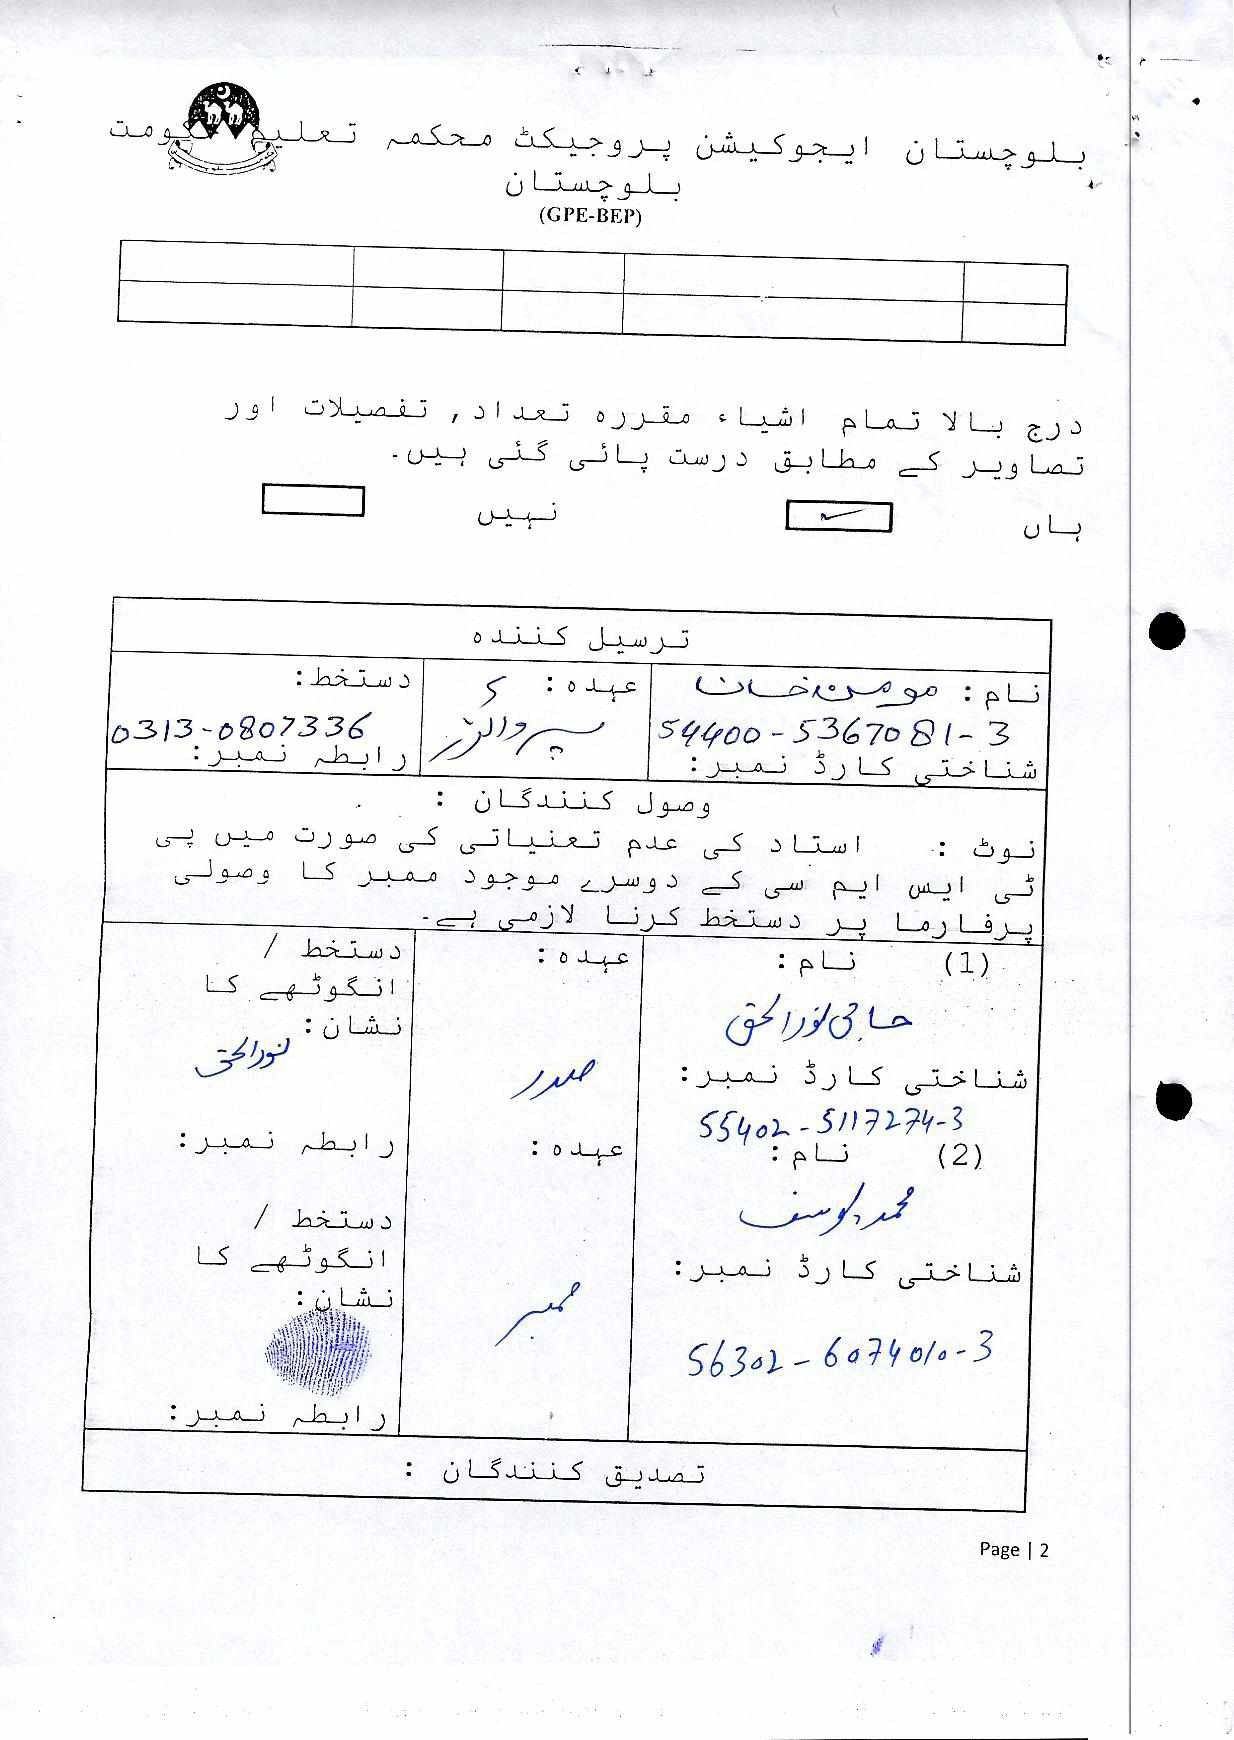 بلوچستان ایجوکیشن پروجیکٹ محکمہ تعلیم حکومت
بلوچستان
(GPE-BEP)
درج بالا تمام اشیاء مقررہ تعداد, تفصیلات اور
تصاویر کے مطابق درست پائی گئی ہیں۔
ہاں نہیں
ترسیل کنندہ
نام : مومن خان عہدہ : دستخط:
54400-5367081-3 سپروائزر 0313-0807336
شناختی کارڈ نمبر: رابطہ نمبر:
وصول کنندگان :
نوٹ : استاد کی عدم تعنیاتی کی صورت میں پی
ٹی ایس ایم سی کے دوسرے موجود ممبر کا وصولی
پرفارما پر دستخط کرنا لازمی ہے۔
(1) نام : عہدہ : دستخط /
انگوٹھے کا
نشان :
حاجی نورالحق صدر نورالحق
شناختی کارڈ نمبر:
55402-5117274-3
(2) نام : عہدہ : رابطہ نمبر:
محمد یوسف دستخط /
انگوٹھے کا
شناختی کارڈ نمبر: نشان :
ممبر
56302-6074010-3
رابطہ نمبر:
تصدیق کنندگان :
Page | 2